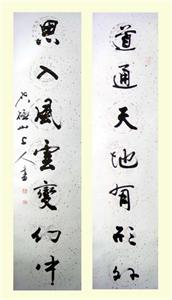 道通天地有形外
思入風雲變幻中